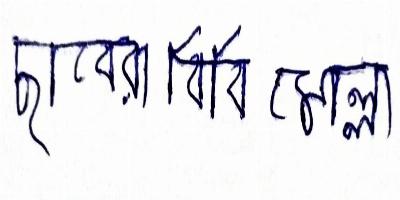 ছাবেরা বিবি মোল্লা